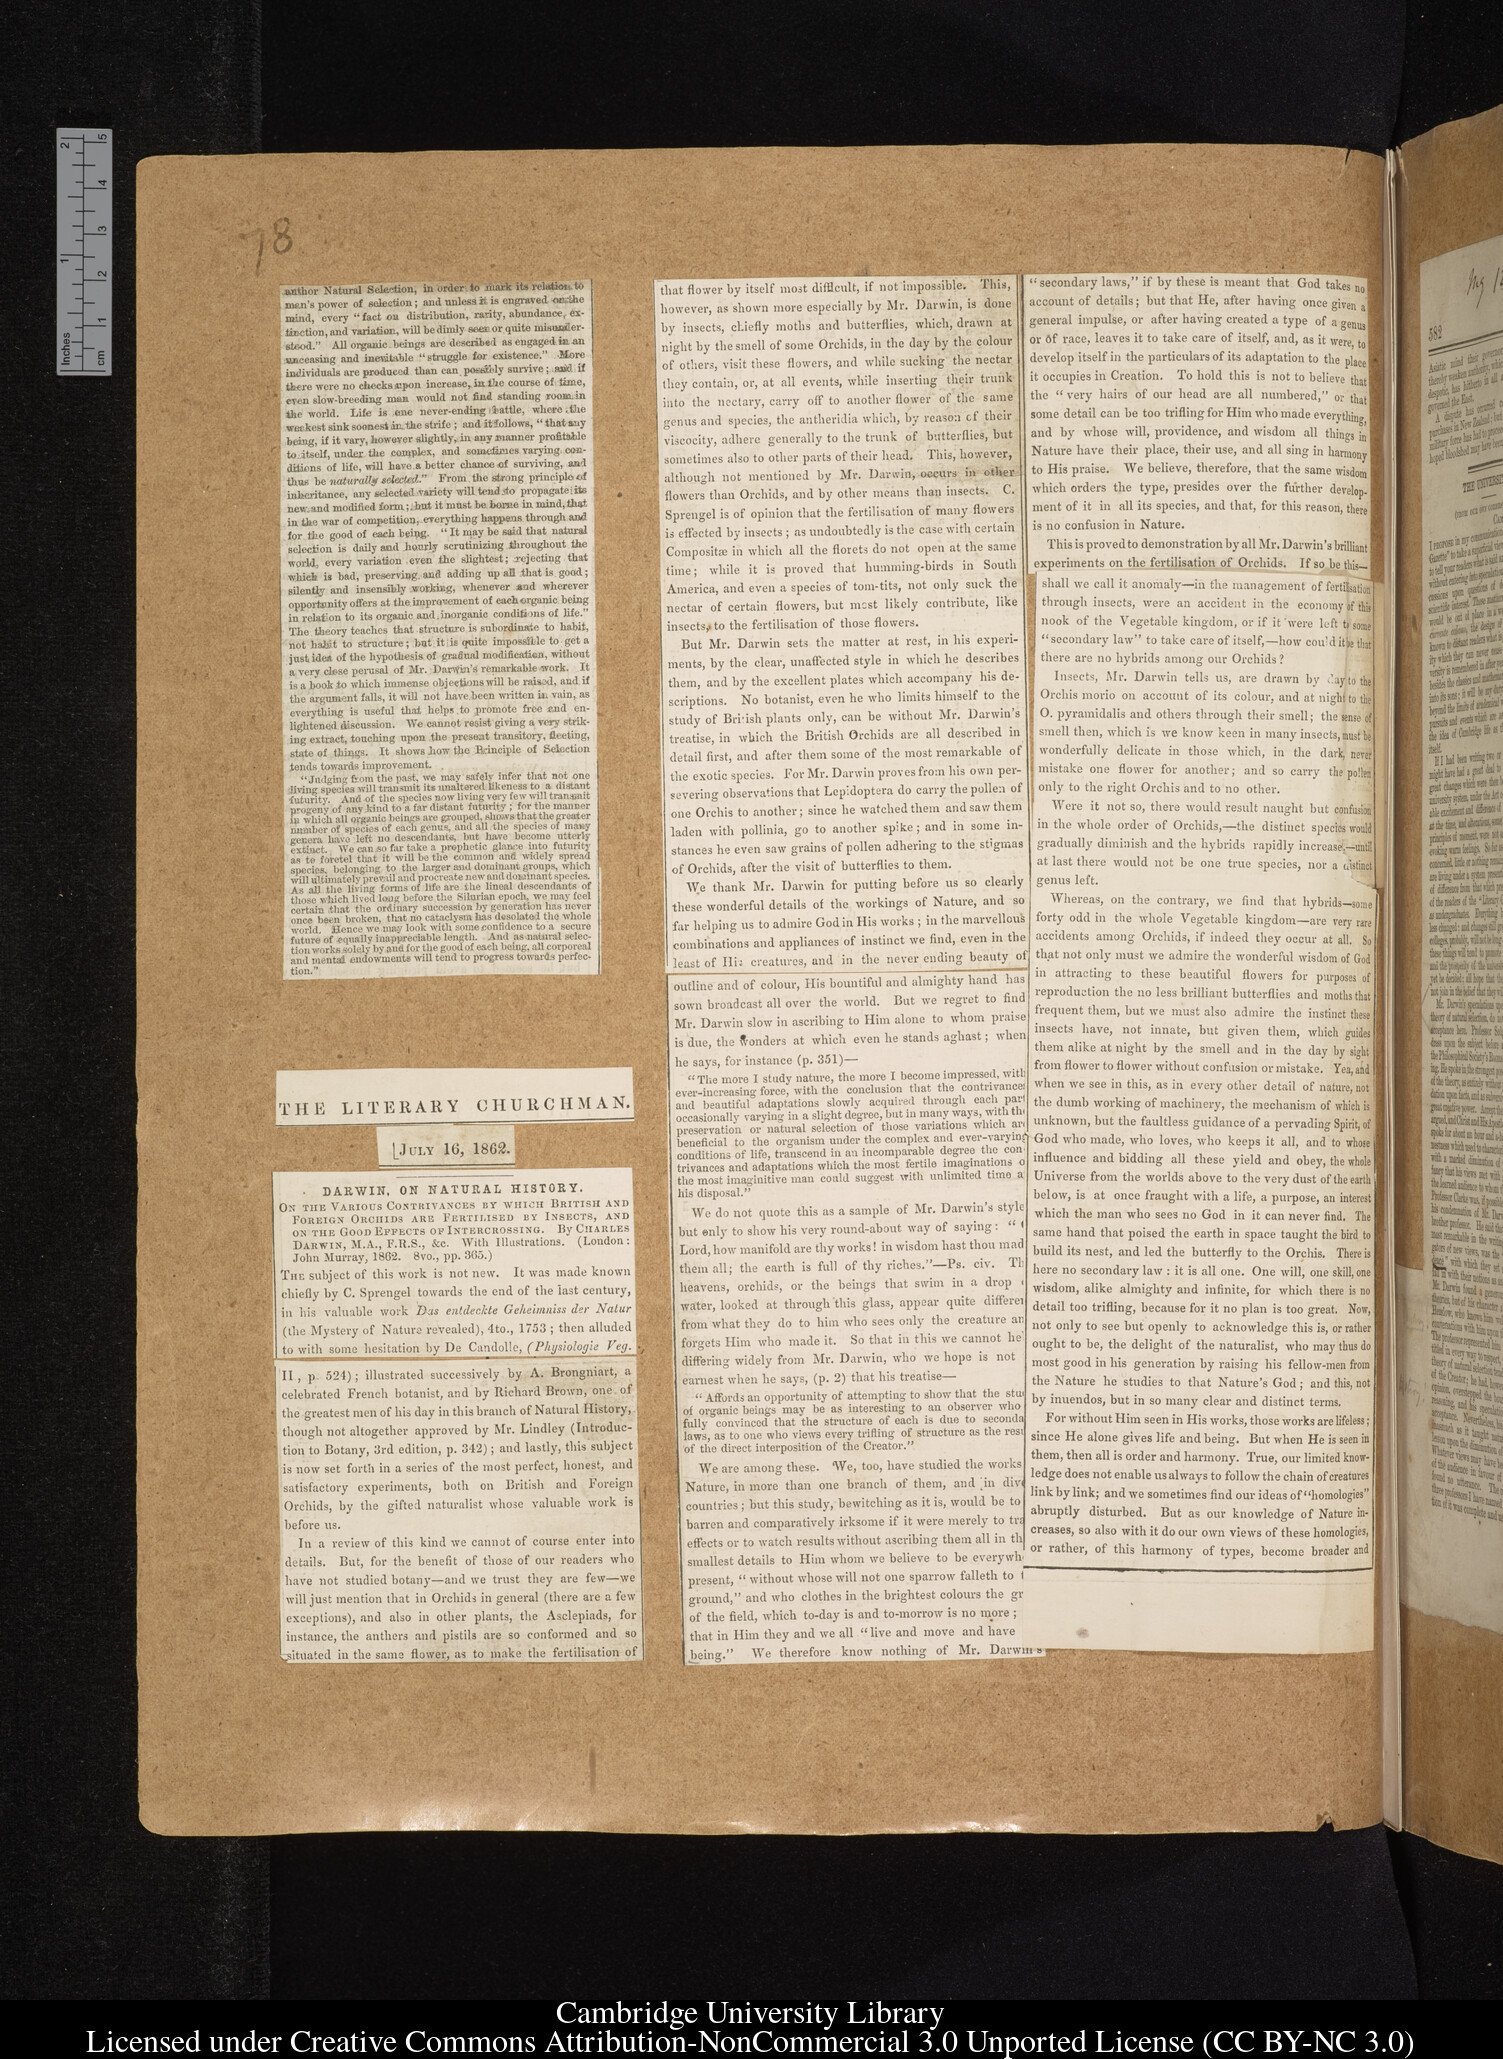 78
author Natural Selection, in order to mark its relation to
man's power of selection; and unless it is engraved on the
mind, every "fact on distribution, rarity, abundance, ex-
tinction, and variation, will be dimly seen or quite misunder-
stood." All organic beings are described as engaged in an
unceasing and inevitable "struggle for existence." More
individuals are produced than can possibly survive; and if
there were no checks upon increase, in the course of time,
even slow-breeding man would not find standing room in
the world. Life is one never-ending battle, where the
weakest sink soonest in the strife; and it follows, "that any
being, if it vary, however slightly, in any manner profitable
to itself, under the complex, and sometimes varying con-
ditions of life, will have a better chance of surviving, and
thus be naturally selected." From the strong principle of
inheritance, any selected variety will tend to propagate its
new and modified form; but it must be borne in mind, that
in the war of competition, everything happens through and
for the good of each being. "It may be said that natural
selection is daily and hourly scrutinizing throughout the
world, every variation even the slightest; rejecting that
which is bad, preserving and adding up all that is good;
silently and insensibly working, whenever and wherever
opportunity offers at the improvement of each organic being
in relation to its organic and inorganic conditions of life."
The theory teaches that structure is subordinate to habit,
not habit to structure; but it is quite impossible to get a
just idea of the hypothesis of gradual modification, without
a very close perusal of Mr. Darwin's remarkable work. It
is a book to which immense objections will be raised, and if
the argument falls, it will not have been written in vain, as
everything is useful that helps to promote free and en-
lightened discussion. We cannot resist giving a very strik-
ing extract, touching upon the present transitory, fleeting,
state of things. It shows how the Principle of Selection
tends towards improvement.
"Judging from the past, we may safely infer that not one
living species will transmit its unaltered likeness to a distant
futurity. And of the species now living very few will transmit
progeny of any kind to a far distant futurity; for the manner
in which all organic beings are grouped, shows that the greater
number of species of each genus, and all the species of many
genera have left no descendants, but have become utterly
extinct. We can so far take a prophetic glance into futurity
as to foretel that it will be the common and widely spread
species, belonging to the larger and dominant groups, which
will ultimately prevail and procreate new and dominant species.
As all the living forms of life are the lineal descendants of
those which lived long before the Silurian epoch, we may feel
certain that the ordinary succession by generation has never
once been broken, that no cataclysm has desolated the whole
world. Hence we may look with some confidence to a secure
future of equally inappreciable length. And as natural selec-
tion works solely by and for the good of each being, all corporeal
and mental endowments will tend to progress towards perfec-
tion."
THE LITERARY CHURCHMAN.
[JULY 16, 1862.
DARWIN, ON NATURAL HISTORY.
ON THE VARIOUS CONTRIVANCES BY WHICH BRITISH AND
FOREIGN ORCHIDS ARE FERTILISED BY INSECTS, AND
ON THE GOOD EFFECTS OF INTERCROSSING. By CHARLES
DARWIN, M.A., F.R.S., &c. With Illustrations. (London:
John Murray, 1862. 8vo., pp. 365.)
THE subject of this work is not new. It was made known
chiefly by C. Sprengel towards the end of the last century,
in his valuable work Das entdeckte Geheimniss der Natur
(the Mystery of Nature revealed), 4to., 1753; then alluded
to with some hesitation by De Candolle, (Physiologie Veg.
II, p. 524); illustrated successively by A. Brongniart, a
celebrated French botanist, and by Richard Brown, one of
the greatest men of his day in this branch of Natural History,
though not altogether approved by Mr. Lindley (Introduc-
tion to Botany, 3rd edition, p. 342); and lastly, this subject
is now set forth in a series of the most perfect, honest, and
satisfactory experiments, both on British and Foreign
Orchids, by the gifted naturalist whose valuable work is
before us.
In a review of this kind we cannot of course enter into
details. But, for the benefit of those of our readers who
have not studied botany—and we trust they are few—we
will just mention that in Orchids in general (there are a few
exceptions), and also in other plants, the Asclepiads, for
instance, the anthers and pistils are so conformed and so
situated in the same flower, as to make the fertilisation of
that flower by itself most difficult, if not impossible. This,
however, as shown more especially by Mr. Darwin, is done
by insects, chiefly moths and butterflies, which, drawn at
night by the smell of some Orchids, in the day by the colour
of others, visit these flowers, and while sucking the nectar
they contain, or, at all events, while inserting their trunk
into the nectary, carry off to another flower of the same
genus and species, the antheridia which, by reason of their
viscocity, adhere generally to the trunk of butterflies, but
sometimes also to other parts of their head. This, however,
although not mentioned by Mr. Darwin, occurs in other
flowers than Orchids, and by other means than insects. C.
Sprengel is of opinion that the fertilisation of many flowers
is effected by insects; as undoubtedly is the case with certain
Compositæ in which all the florets do not open at the same
time; while it is proved that humming-birds in South
America, and even a species of tom-tits, not only suck the
nectar of certain flowers, but most likely contribute, like
insects, to the fertilisation of those flowers.
But Mr. Darwin sets the matter at rest, in his experi-
ments, by the clear, unaffected style in which he describes
them, and by the excellent plates which accompany his de-
scriptions. No botanist, even he who limits himself to the
study of British plants only, can be without Mr. Darwin's
treatise, in which the British Orchids are all described in
detail first, and after them some of the most remarkable of
the exotic species. For Mr. Darwin proves from his own per-
severing observations that Lepidoptera do carry the pollen of
one Orchis to another; since he watched them and saw them
laden with pollinia, go to another spike; and in some in-
stances he even saw grains of pollen adhering to the stigmas
of Orchids, after the visit of butterflies to them.
We thank Mr. Darwin for putting before us so clearly
these wonderful details of the workings of Nature, and so
far helping us to admire God in His works; in the marvellous
combinations and appliances of instinct we find, even in the
least of His creatures, and in the never ending beauty of
outline and of colour, His bountiful and almighty hand has
sown broadcast all over the world. But we regret to find
Mr. Darwin slow in ascribing to Him alone to whom praise
is due, the wonders at which even he stands aghast; when
he says, for instance (p. 351)—
"The more I study nature, the more I become impressed, with
ever-increasing force, with the conclusion that the contrivances
and beautiful adaptations slowly acquired through each part
occasionally varying in a slight degree, but in many ways, with the
preservation or natural selection of those variations which are
beneficial to the organism under the complex and ever-varying
conditions of life, transcend in an incomparable degree the con-
trivances and adaptations which the most fertile imaginations o
the most imaginitive man could suggest with unlimited time a
his disposal."
We do not quote this as a sample of Mr. Darwin's style
but only to show his very round-about way of saying: "
Lord, how manifold are thy works! in wisdom hast thou mad
them all; the earth is full of thy riches."—Ps. civ. Th
heavens, orchids, or the beings that swim in a drop
water, looked at through this glass, appear quite differen
from what they do to him who sees only the creature an
forgets Him who made it. So that in this we cannot he
differing widely from Mr. Darwin, who we hope is not
earnest when he says, (p. 2) that his treatise—
"Affords an opportunity of attempting to show that the stu
of organic beings may be as interesting to an observer who
fully convinced that the structure of each is due to seconda
laws, as to one who views every trifling of structure as the resu
of the direct interposition of the Creator."
We are among these. We, too, have studied the works
Nature, in more than one branch of them, and in dive
countries; but this study, bewitching as it is, would be to
barren and comparatively irksome if it were merely to tra
effects or to watch results without ascribing them all in th
smallest details to Him whom we believe to be everywhe
present, "without whose will not one sparrow falleth to t
ground," and who clothes in the brightest colours the gr
of the field, which to-day is and to-morrow is no more;
that in Him they and we all "live and move and have
being." We therefore know nothing of Mr. Darwin's
"secondary laws," if by these is meant that God takes no
account of details; but that He, after having once given a
general impulse, or after having created a type of a genus
or of race, leaves it to take care of itself, and, as it were, to
develop itself in the particulars of its adaptation to the place
it occupies in Creation. To hold this is not to believe that
the "very hairs of our head are all numbered," or that
some detail can be too trifling for Him who made everything,
and by whose will, providence, and wisdom all things in
Nature have their place, their use, and all sing in harmony
to His praise. We believe, therefore, that the same wisdom
which orders the type, presides over the further develop-
ment of it in all its species, and that, for this reason, there
is no confusion in Nature.
This is proved to demonstration by all Mr. Darwin's brilliant
experiments on the fertilisation of Orchids. If so be this—
shall we call it anomaly—in the management of fertilisation
through insects, were an accident in the economy of this
nook of the Vegetable kingdom, or if it were left to some
"secondary law" to take care of itself,—how could it be that
there are no hybrids among our Orchids?
Insects, Mr. Darwin tells us, are drawn by day to the
Orchis morio on account of its colour, and at night to the
O. pyramidalis and others through their smell; the sense of
smell then, which is we know keen in many insects, must be
wonderfully delicate in those which, in the dark, never
mistake one flower for another; and so carry the pollen
only to the right Orchis and to no other.
Were it not so, there would result naught but confusion
in the whole order of Orchids,—the distinct species would
gradually diminish and the hybrids rapidly increase,—until
at last there would not be one true species, nor a distinct
genus left.
Whereas, on the contrary, we find that hybrids—some
forty odd in the whole Vegetable kingdom—are very rare
accidents among Orchids, if indeed they occur at all. So
that not only must we admire the wonderful wisdom of God
in attracting to these beautiful flowers for purposes of
reproduction the no less brilliant butterflies and moths that
frequent them, but we must also admire the instinct these
insects have, not innate, but given them, which guides
them alike at night by the smell and in the day by sight
from flower to flower without confusion or mistake. Yea, and
when we see in this, as in every other detail of nature, not
the dumb working of machinery, the mechanism of which is
unknown, but the faultless guidance of a pervading Spirit, of
God who made, who loves, who keeps it all, and to whose
influence and bidding all these yield and obey, the whole
Universe from the worlds above to the very dust of the earth
below, is at once fraught with a life, a purpose, an interest
which the man who sees no God in it can never find. The
same hand that poised the earth in space taught the bird to
build its nest, and led the butterfly to the Orchis. There is
here no secondary law: it is all one. One will, one skill, one
wisdom, alike almighty and infinite, for which there is no
detail too trifling, because for it no plan is too great. Now,
not only to see but openly to acknowledge this is, or rather
ought to be, the delight of the naturalist, who may thus do
most good in his generation by raising his fellow-men from
the Nature he studies to that Nature's God; and this, not
by inuendos, but in so many clear and distinct terms.
For without Him seen in His works, those works are lifeless;
since He alone gives life and being. But when He is seen in
them, then all is order and harmony. True, our limited know-
ledge does not enable us always to follow the chain of creatures
link by link; and we sometimes find our ideas of "homologies"
abruptly disturbed. But as our knowledge of Nature in-
creases, so also with it do our own views of these homologies,
or rather, of this harmony of types, become broader and
582
THE UNIVERSI
Inches
1
2
cm
1
2
3
4
5
Cambridge University Library
Licensed under Creative Commons Attribution-NonCommercial 3.0 Unported License (CC BY-NC 3.0)